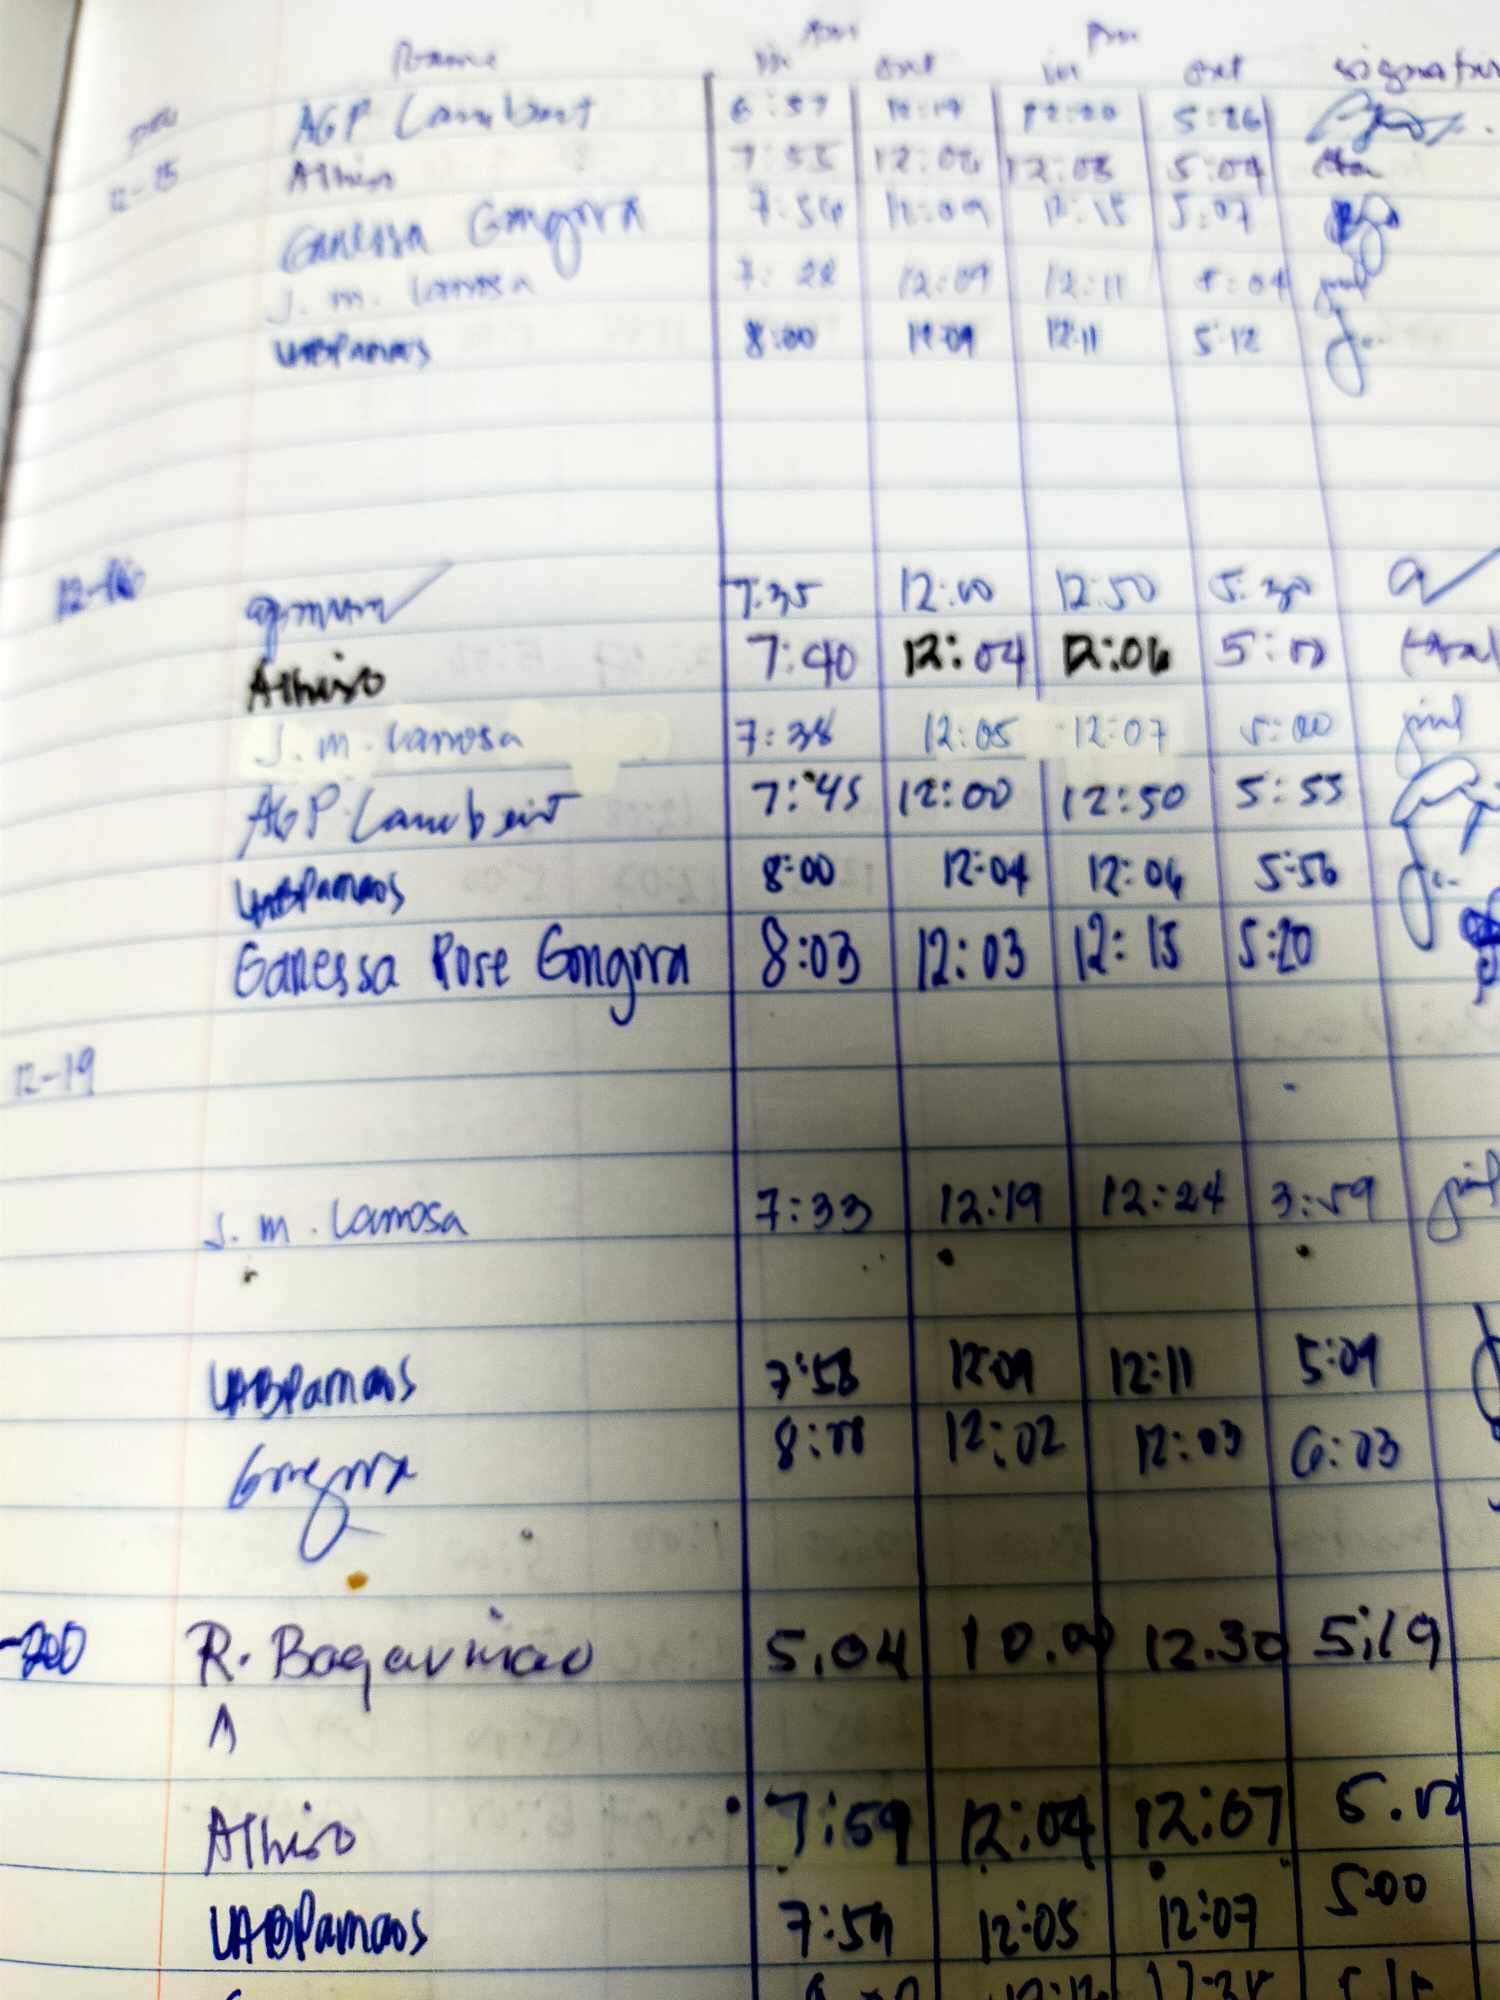 Name in Am out in Pm out signature
AGP Lambert 6:57 12:19 12:20 5:26
12-15 Alhiso 7:55 12:02 12:03 5:04
Ganessa Gongora 7:54 12:09 12:15 5:07
J. m. Lamosa 7:28 12:09 12:11 5:04
UABPamaos 8:00 12:09 12:11 5:12
12-16 7:35 12:00 12:50 5:30
Alhiso 7:40 12:04 12:06 5:00
J. m. Lamosa 7:38 12:05 12:07 5:00
AGP Lambert 7:45 12:00 12:50 5:55
UABPamaos 8:00 12:04 12:06 5:56
Ganessa Rose Gongora 8:03 12:03 12:15 5:20
12-19
J. m. Lamosa 7:33 12:19 12:24 3:59
UABPamaos 7:58 12:09 12:11 5:09
Gongora 8:00 12:02 12:03 6:03
R. Bagavinao 5.04 10.00 12.30 5:19
A
Alhiso 7:59 12:04 12:07
UABPamaos 7:59 12:05 12:07 5:00